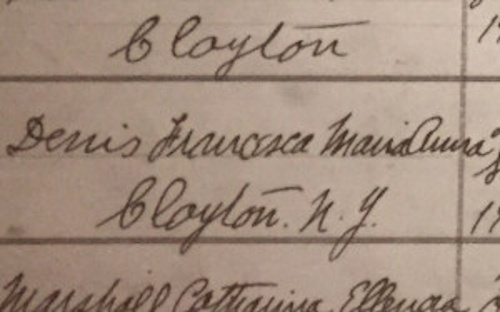 Clayton
Denis Francesca Maria Anna
Clayton. N. Y.
Marshall Catharina